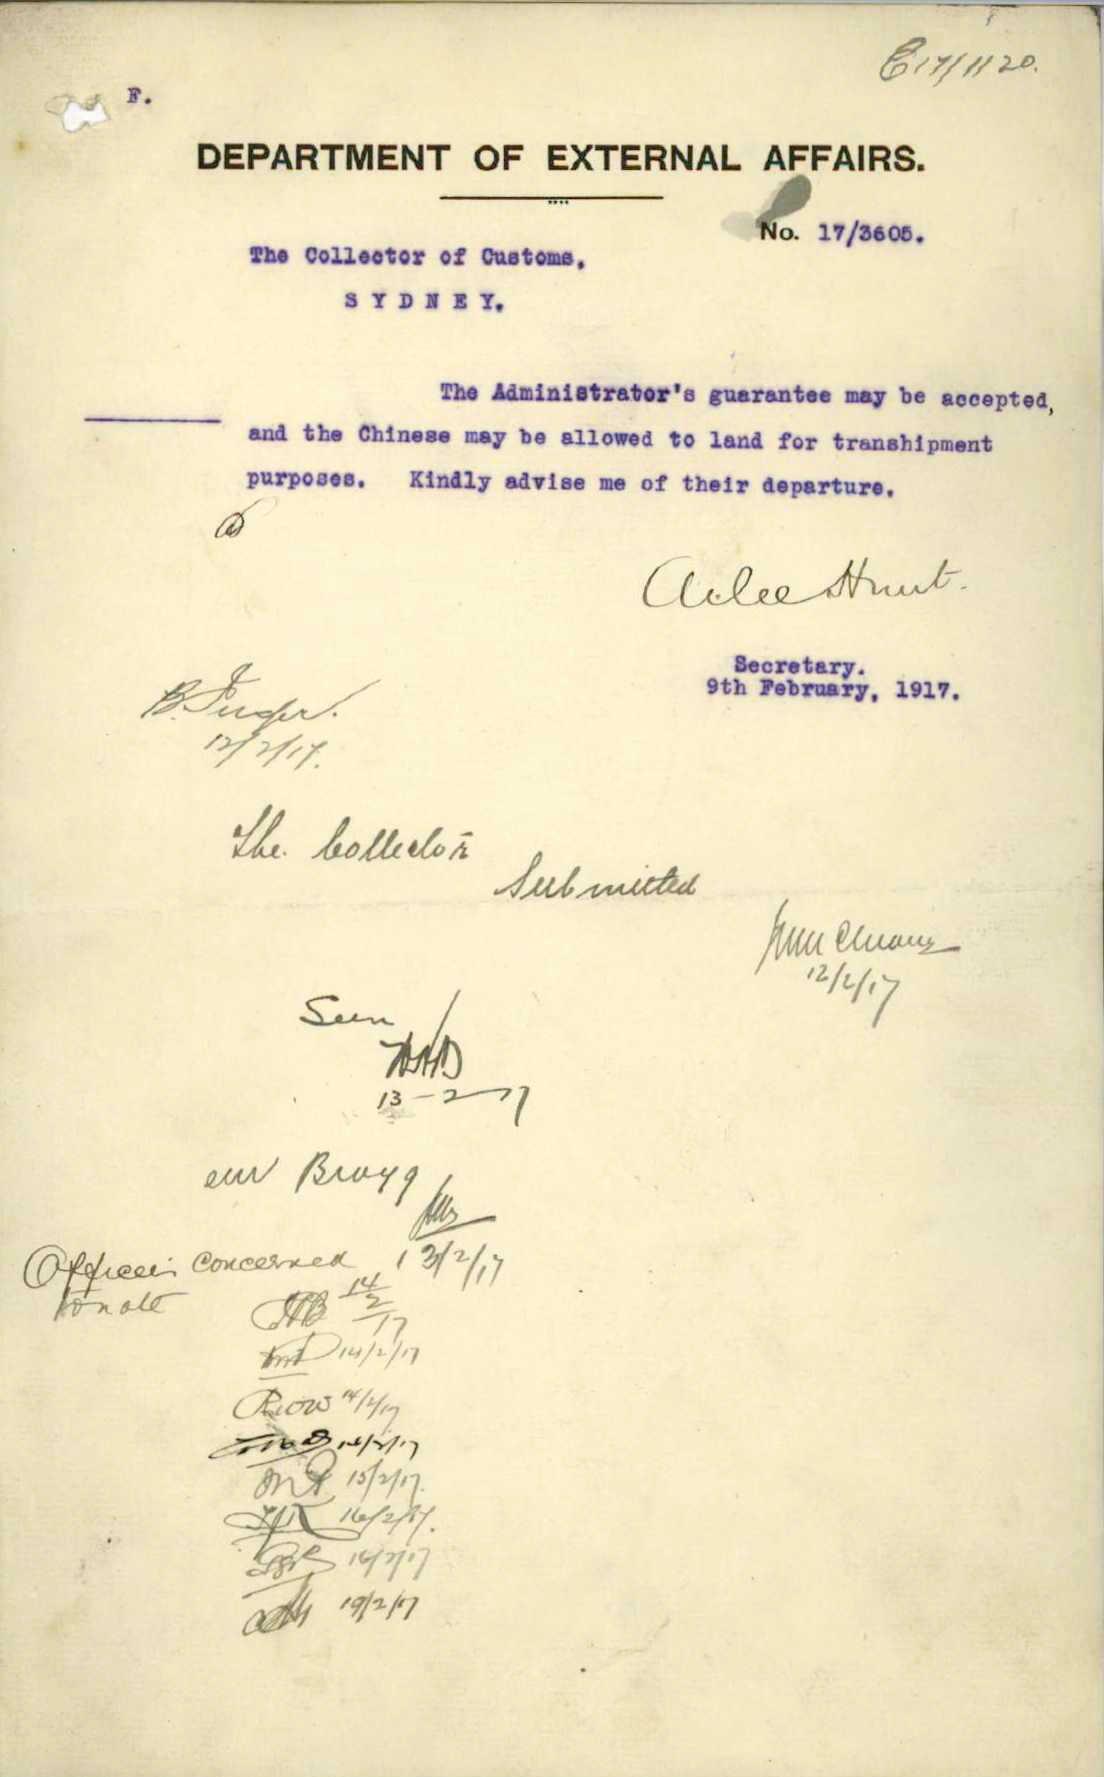 C17/1120.
F.
DEPARTMENT OF EXTERNAL AFFAIRS.
No. 17/3605.
The Collector of Customs,
SYDNEY.
The Administrator's guarantee may be accepted,
and the Chinese may be allowed to land for transhipment
purposes. Kindly advise me of their departure.
Atlee Hunt.
Secretary.
9th February, 1917.
12/2/17.
The Collector
Submitted
12/2/17
Seen
13-2-17
Mr Bragg
13/2/17
Officers concerned
to note
14/2/17
14/2/17
14/2/17
14/2/17
15/2/17.
16/2/17.
16/2/17
19/2/17